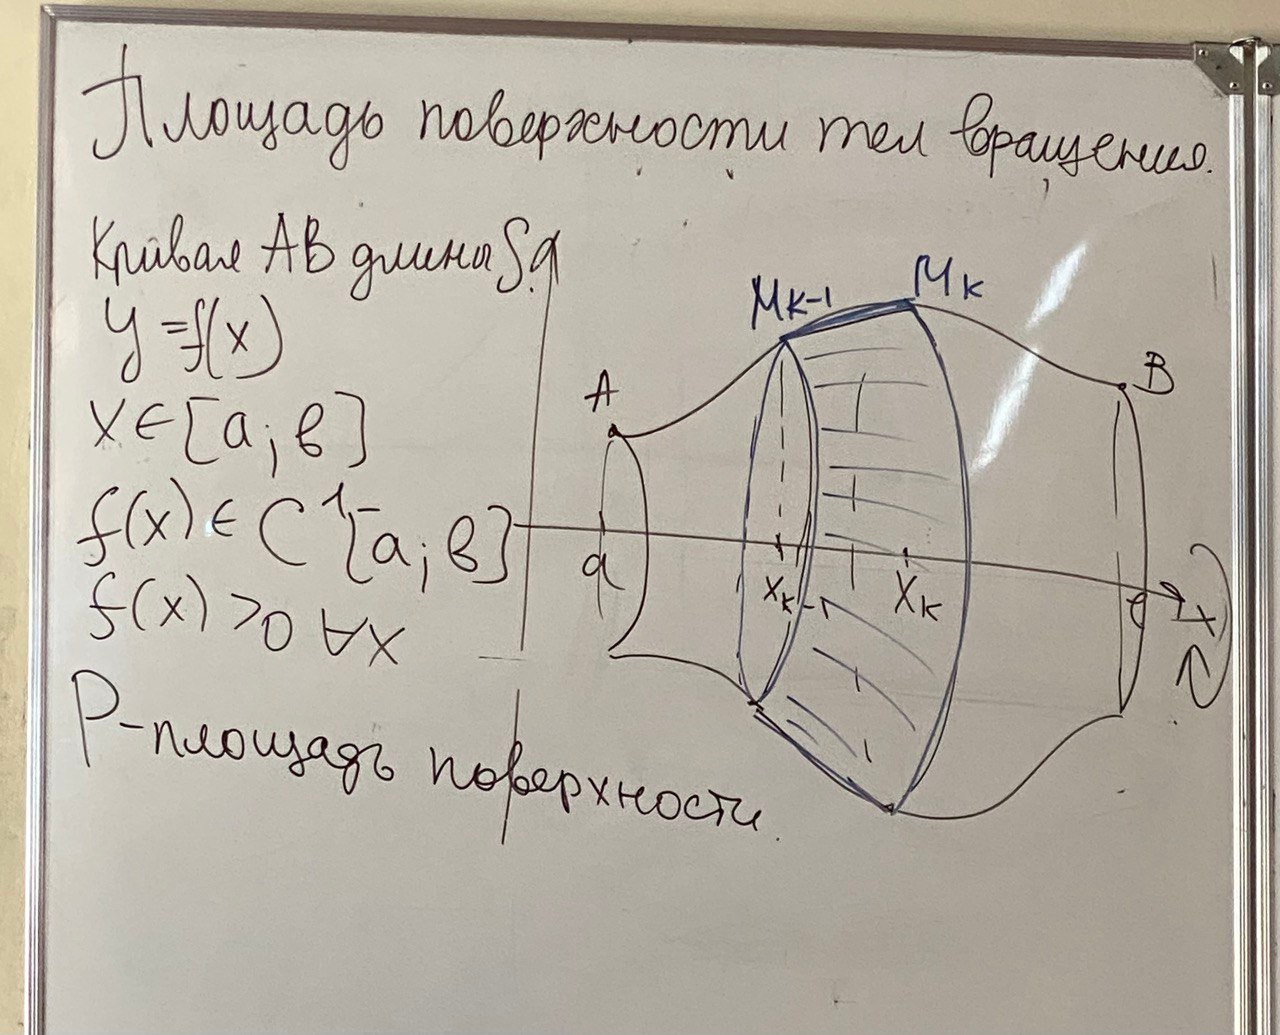 Площадь поверхности тел вращения.
Кривая AB длины S.
y = f(x)
x ∈ [a; b]
f(x) ∈ C¹[a; b]
f(x) > 0 ∀x
P - площадь поверхности.
M_{K-1} M_K
A B
a x_{K-1} x_K b x